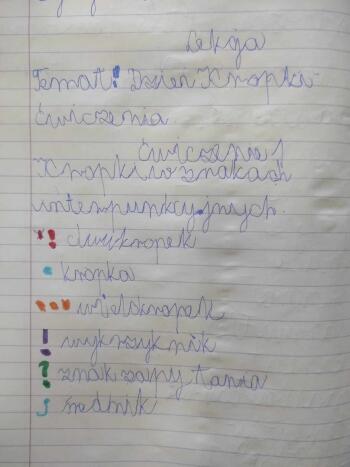 Lekcja
Temat: Dzień Kropki-
ćwiczenia
ćwiczenie 1
Kropki w znakach
interpunkcyjnych.
: dwukropek
. kropka
... wielokropek
! wykrzyknik
? znak zapytania
; średnik